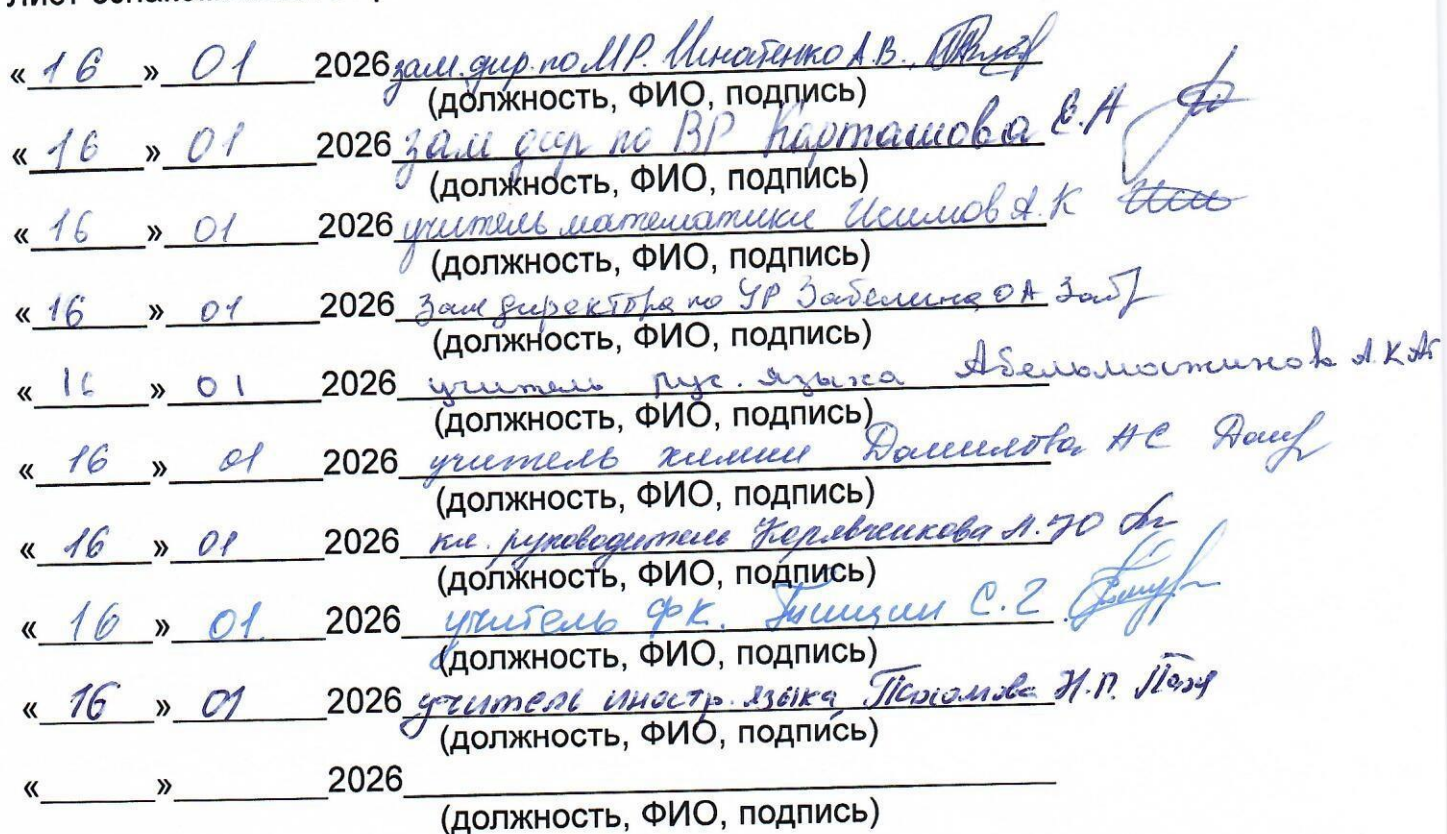 « 16 » 01 2026 зам. дир. по МР. Игнатенко А.В.
(должность, ФИО, подпись)
« 16 » 01 2026 зам дир по ВР Карташова Е.А
(должность, ФИО, подпись)
« 16 » 01 2026 учитель математики Исимов А.К
(должность, ФИО, подпись)
« 16 » 01 2026 Зам директора по УР Забелина ОА
(должность, ФИО, подпись)
« 16 » 01 2026 учитель рус. языка А.К
(должность, ФИО, подпись)
« 16 » 01 2026 учитель химии Данилова АС
(должность, ФИО, подпись)
« 16 » 01 2026 кл. руководитель
(должность, ФИО, подпись)
« 16 » 01. 2026 учитель ФК. С.Г
(должность, ФИО, подпись)
« 16 » 01 2026 учитель иностр. языка Н.П.
(должность, ФИО, подпись)
« » 2026
(должность, ФИО, подпись)